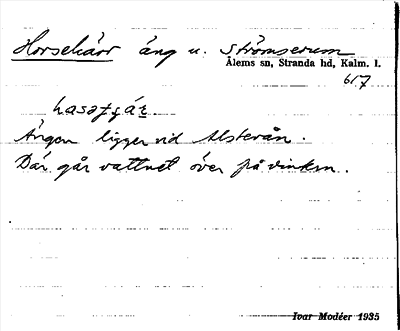 Horsekärr äng u. Strömserum
Ålems sn, Stranda hd, Kalm. l.
617
Ängen ligger vid Alsterån.
Där går vattnet över på vintern.
Ivar Modéer 1935